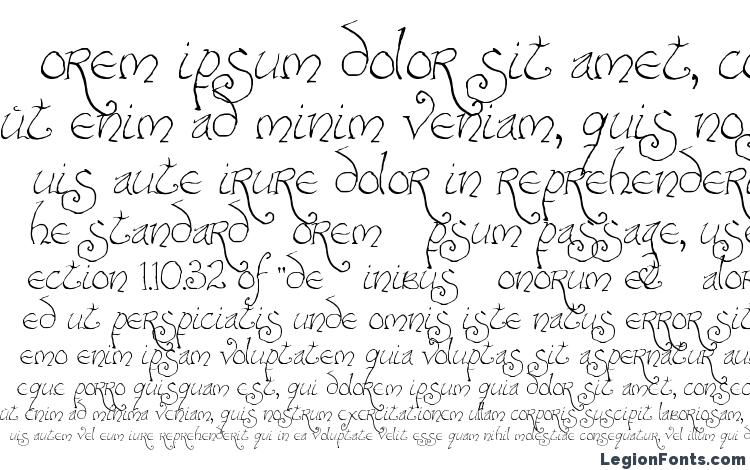 orem ipsum dolor sit amet, co
ut enim ad minim veniam, quis nos
uis aute irure dolor in reprehenderi
he standard orem psum passage, use
ection 1.10.32 of "de inibus onorum et alor
ed ut perspiciatis unde omnis iste natus error sit
emo enim ipsam voluptatem quia voluptas sit aspernatur aut
eque porro quisquam est, qui dolorem ipsum quia dolor sit amet, consec
ut enim ad minima veniam, quis nostrum exercitationem ullam corporis suscipit laboriosam,
uis autem vel eum iure reprehenderit qui in ea voluptate velit esse quam nihil molestiae consequatur, vel illum qui
LegionFonts.com